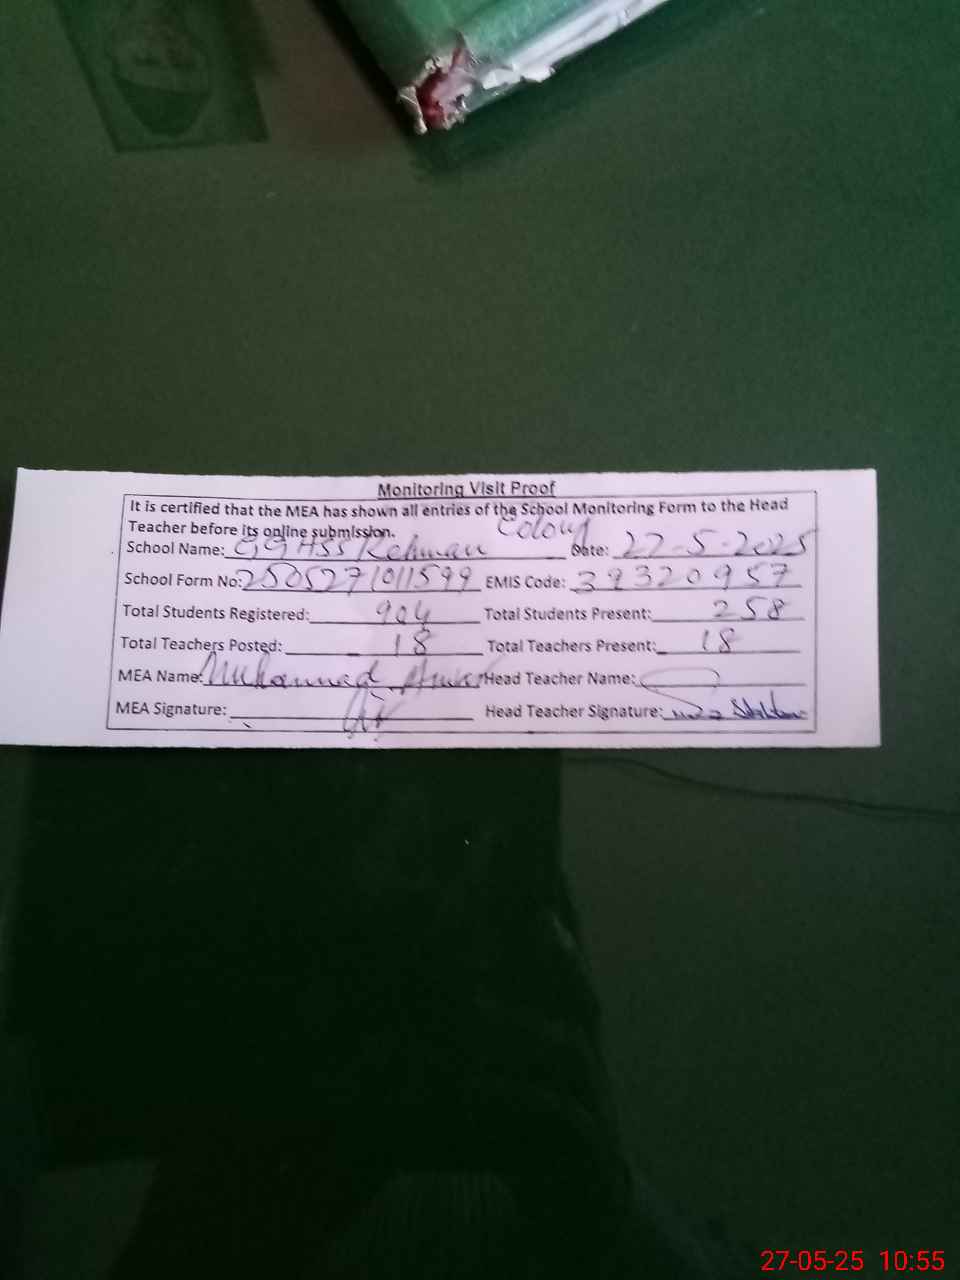 Monitoring Visit Proof
It is certified that the MEA has shown all entries of the School Monitoring Form to the Head
Teacher before its online submission.
School Name: GGHSS Rehman Colony Date: 27-5-2025
School Form No: 2505271011599 EMIS Code: 39320957
Total Students Registered: 904 Total Students Present: 258
Total Teachers Posted: 18 Total Teachers Present: 18
MEA Name: Muhammad Head Teacher Name:
MEA Signature: Head Teacher Signature:
27-05-25 10:55